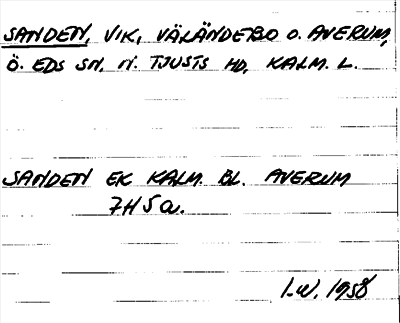 SANDEN, VIK, VÄLÄNDEBO O. AVERUM,
Ö. EDS SN, N. TJUSTS HD, KALM. L.
SANDEN EK KALM. BL. AVERUM
7H5a.
I.W. 1958